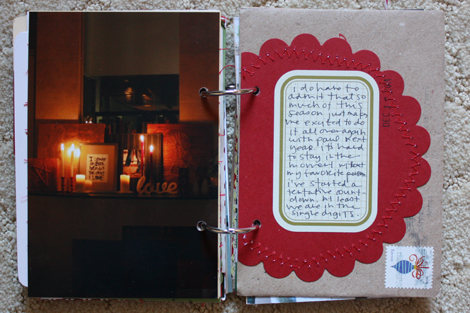 love
i do have to
admit that so
much of this
season just makes
me excited to do
it all over again
with paul next
year. it's hard
to stay in the
moment w/out
my favorite person
i've started a
tentative count-
down. at least
we are in the
single digits.